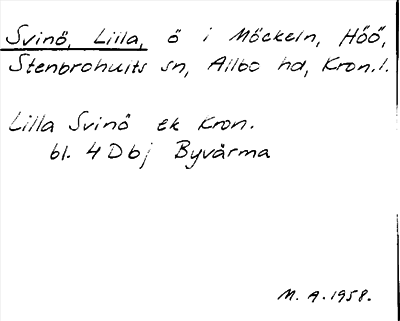 Svinö, Lilla, ö i Möckeln, Höö,
Stenbrohults sn, Allbo hd, Kron.l.
Lilla Svinö ek Kron.
bl. 4 D bj Byvärma
M. A. 1958.